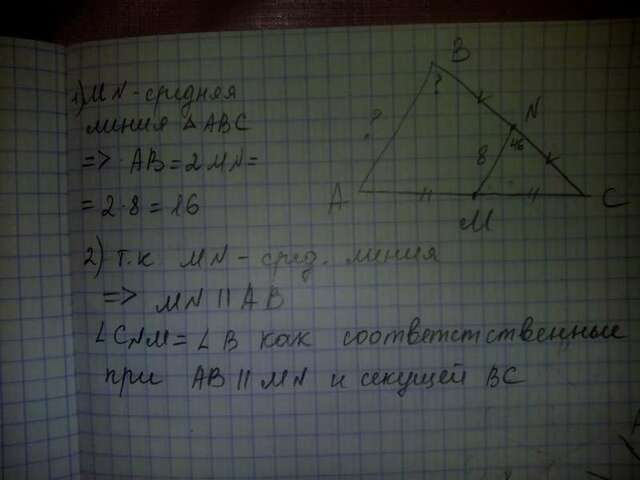 1) MN - средняя
линия △ ABC
=> AB = 2 MN =
= 2·8 = 16
2) т.к MN - сред. линия
=> MN || AB
∠CNM = ∠B как соответстственные
при AB || MN и секущей BC
B
?
N
?
8
46
A
M
C